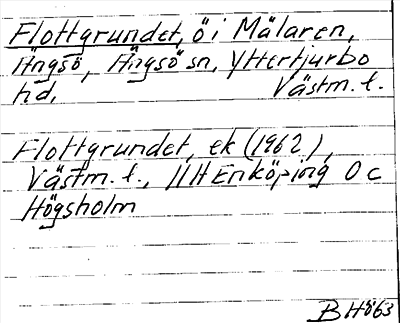 Flottgrundet, ö i Mälaren,
Ängsö, Ängsö sn, Yttertjurbo
hd, Västm. l.
Flottgrundet, ek (1962),
Västm. l., 11H Enköping 0 c
Högsholm
BHö63